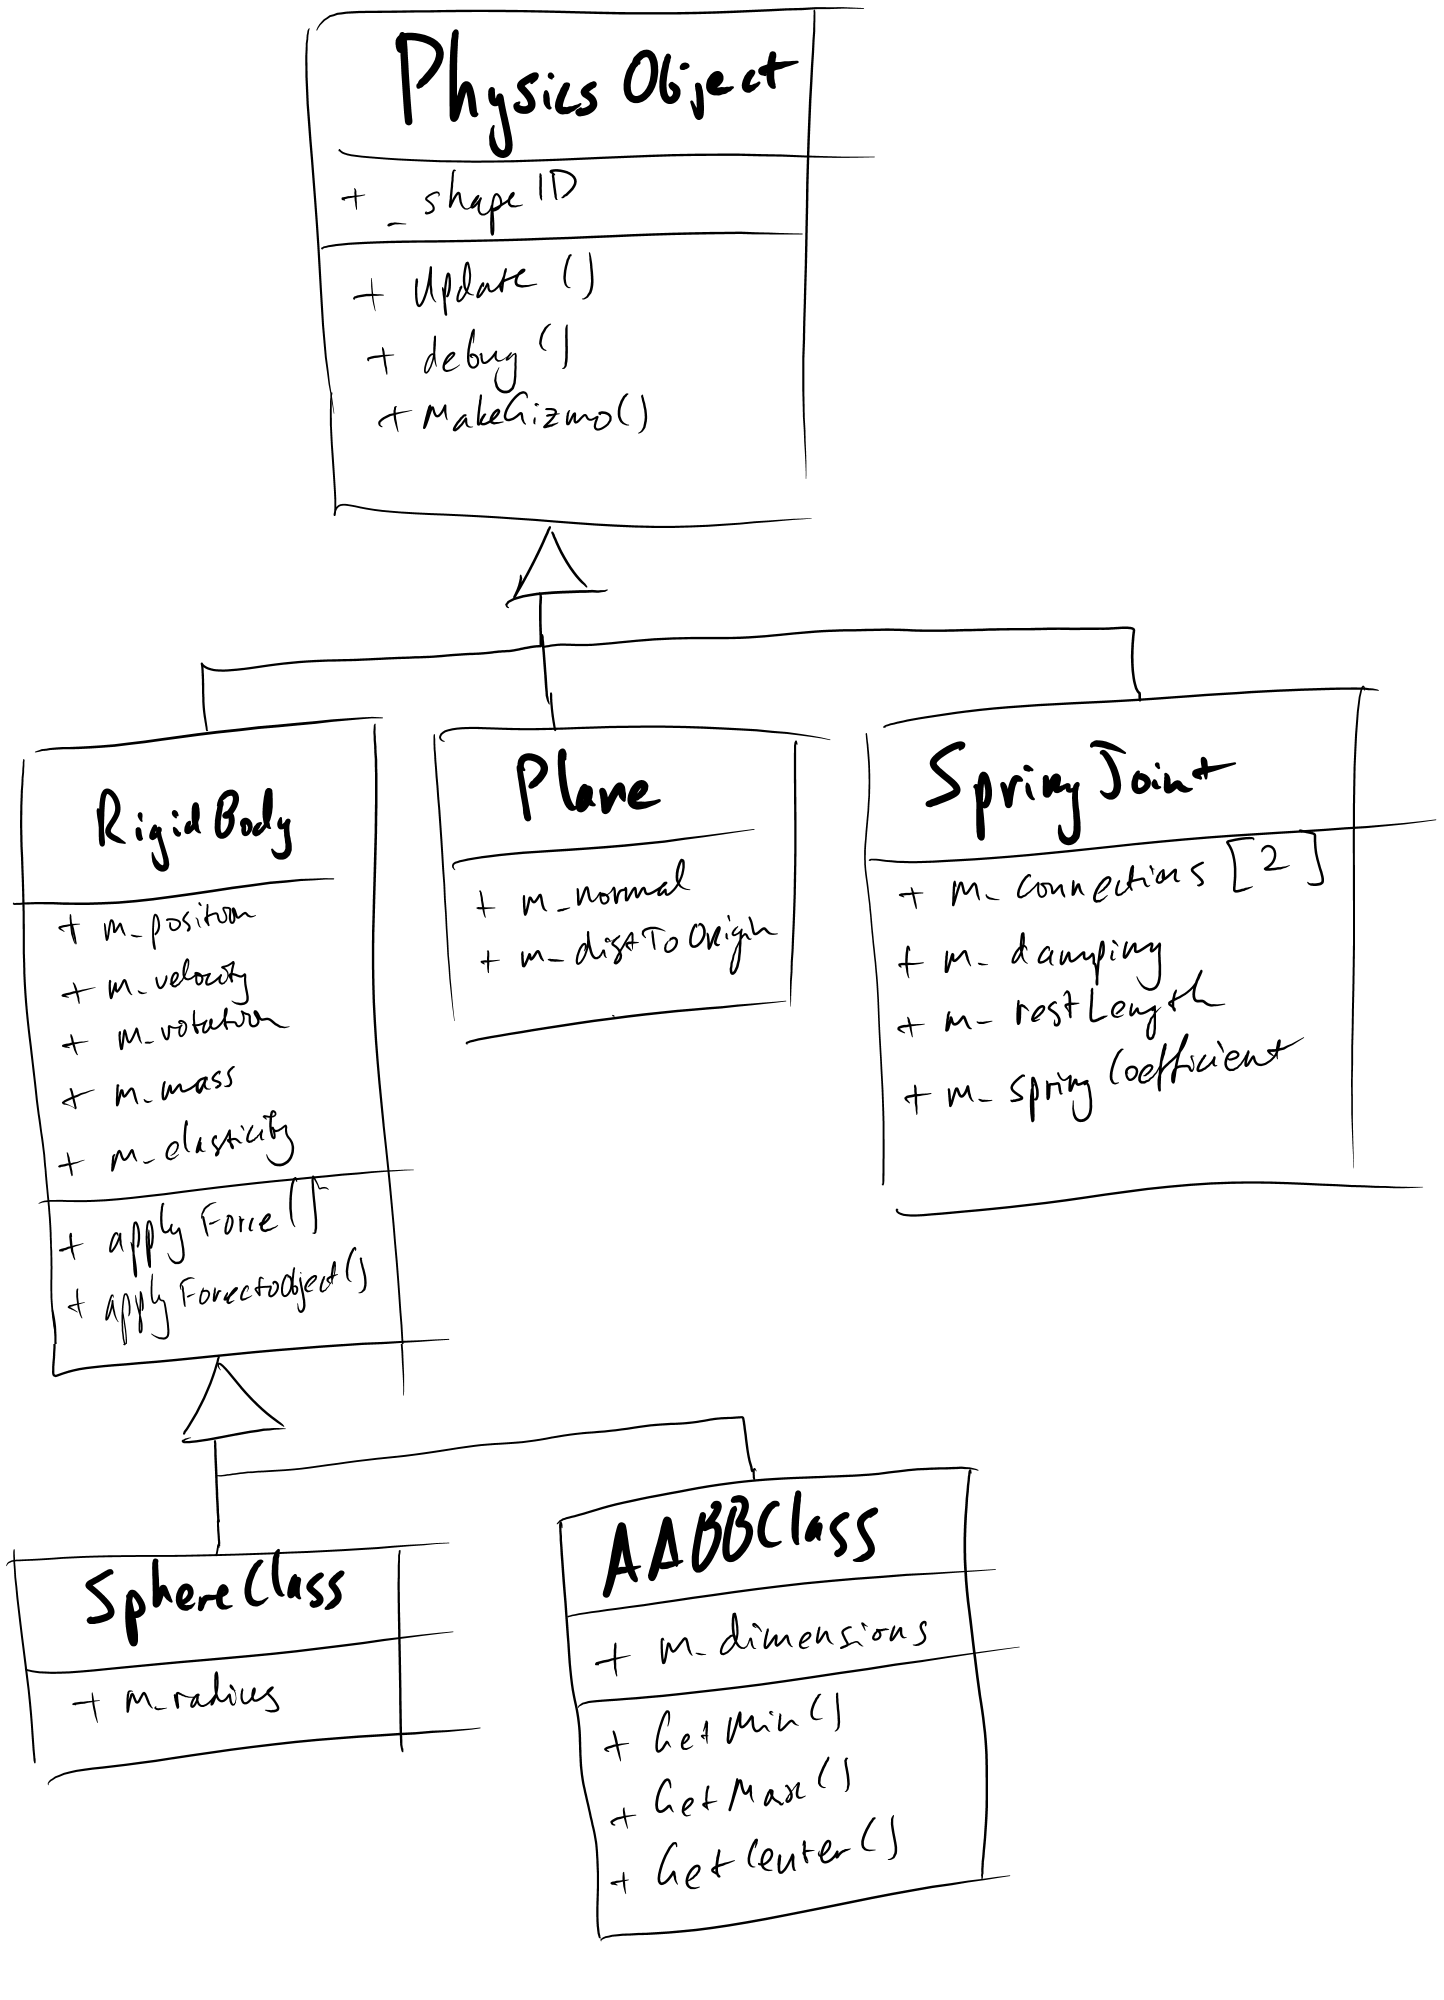 Physics Object
+ _ shapeID
+ Update ()
+ debug ()
+ MakeGizmo()
RigidBody
+ m_position
+ m_velocity
+ m_rotation
+ m_mass
+ m_elasticity
+ applyForce()
+ applyForcetoObject()
Plane
+ m_normal
+ m_distToOrigin
SpringJoint
+ m_connections [2]
+ m_damping
+ m_restLength
+ m_springCoefficient
SphereClass
+ m_radius
AABBClass
+ m_dimensions
+ GetMin()
+ GetMax()
+ GetCenter()